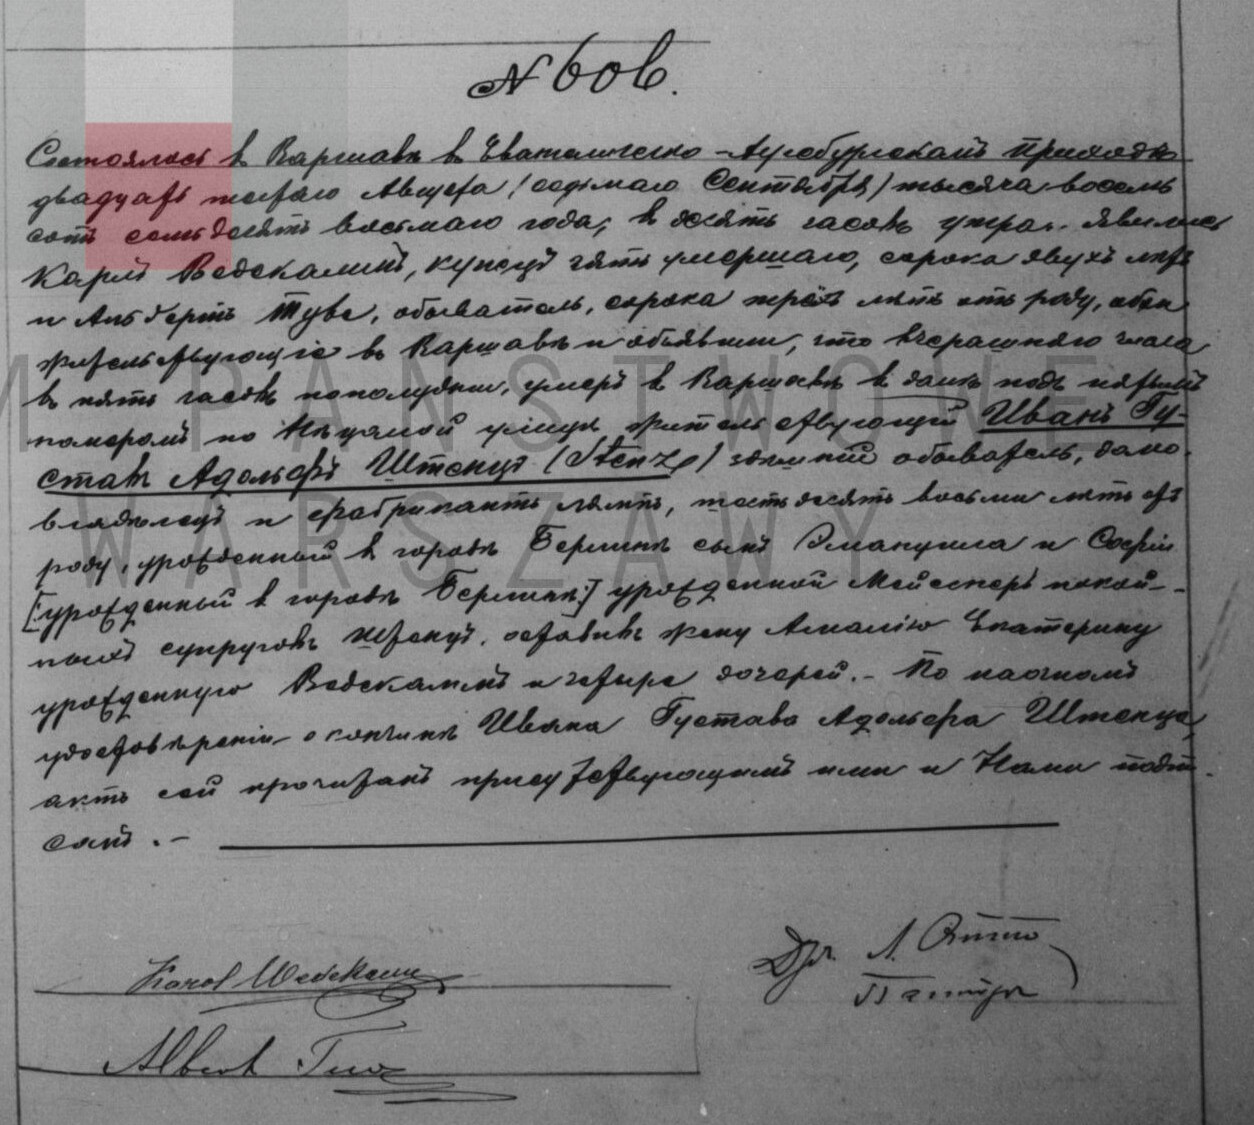 N 606.
Состоялось в Варшавѣ в Евангелическо-Аугсбургскомъ Приходѣ
двадцать шестаго Августа /седьмаго Сентября/ тысяча восемь
сотъ семьдесятъ восьмаго года, в десять часовъ утра. Явились
Карлъ Ведекампъ, купецъ зять умершаго, сорока двухъ лѣтъ
и Альбертъ Туве, обыватель, сорока трехъ лѣтъ отъ роду, оба
жительствующіе въ Варшавѣ и объявили, что вчерашняго числа
въ пять часовъ пополудни, умеръ в Варшавѣ в домѣ подъ пятымъ
номеромъ по Нѣцалой улицѣ жительствующій Иванъ Гу-
ставъ Адольфъ Штенцъ (Stenz) здѣшній обыватель, домо-
владѣлецъ и фабрикантъ лампъ, шестьдесятъ восьми лѣтъ отъ
роду, урожденный в городѣ Берлинѣ сынъ Эмануила и Софіи
[:урожденный в городѣ Берлинѣ:] урожденной Мейснеръ покой-
ныхъ супруговъ Штенцъ, оставивъ жену Амалію Екатерину
урожденную Ведекампъ и четыре дочерей.- По наочномъ
удостовѣреніи о кончинѣ Ивана Густава Адольфа Штенца,
актъ сей прочитанъ присутствующимъ ими и Нами подпи-
санъ.-
Karol Wedekamp
Albert
Др. Л. Отто
Пасторъ
PAŃSTWOWE
WARSZAWY